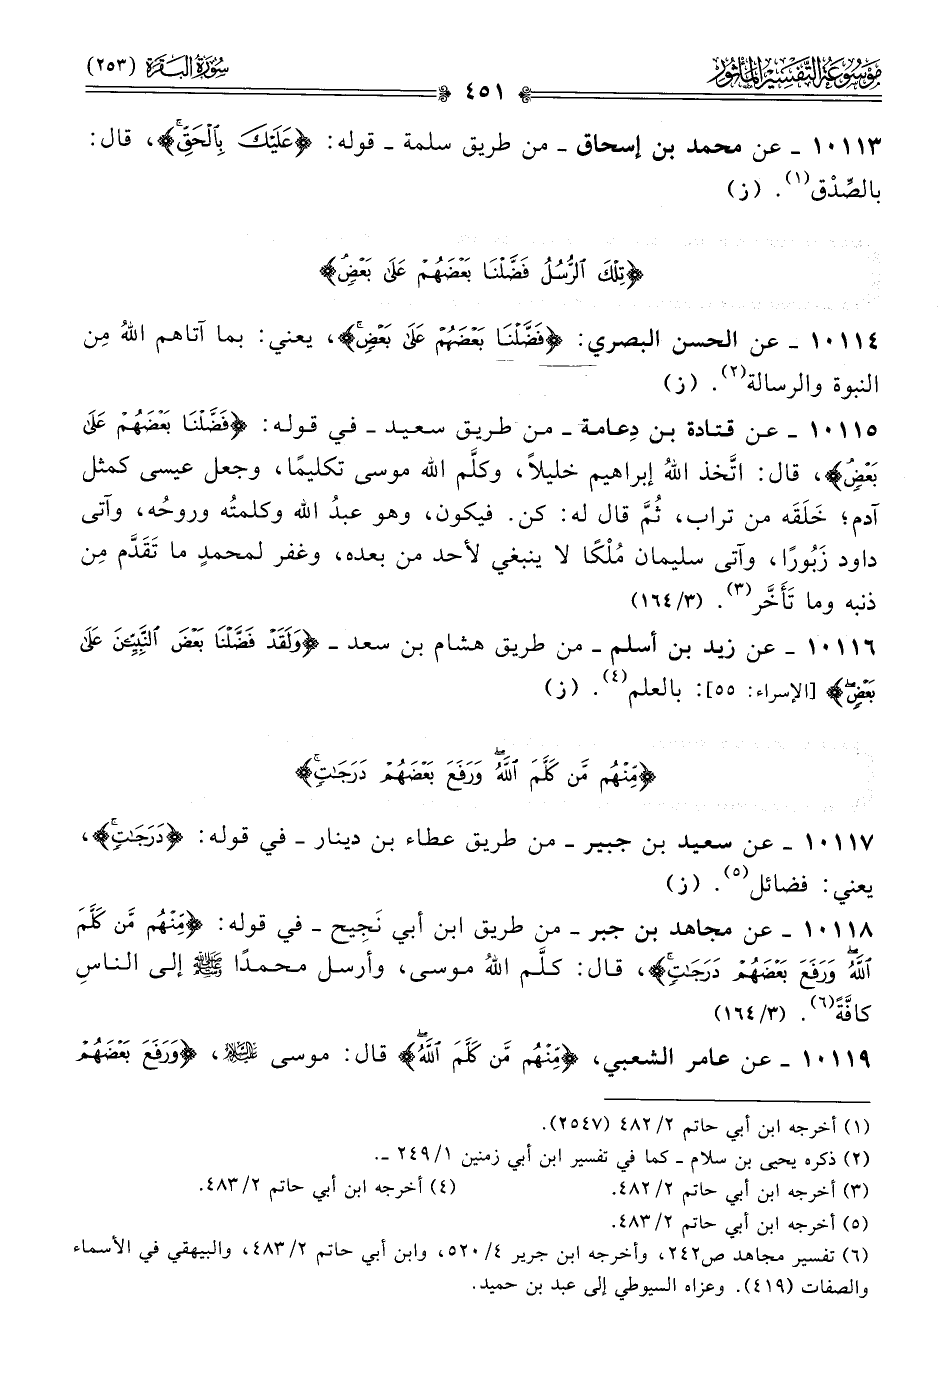 مَوْسُوعَة التَّفْسِيْر المَأْثُور
٤٥١
سُورَةُ البَقَرَة (٢٥٣)
١٠١١٣ ـ عن محمد بن إسحاق ـ من طريق سلمة ـ قوله: ﴿عَلَيْكَ بِالْحَقِّۚ﴾، قال:
بالصِّدْق(١). (ز)
﴿تِلْكَ الرُّسُلُ فَضَّلْنَا بَعْضَهُمْ عَلَىٰ بَعْضٍ﴾
١٠١١٤ ـ عن الحسن البصري: ﴿فَضَّلْنَا بَعْضَهُمْ عَلَىٰ بَعْضٍۚ﴾، يعني: بما آتاهم اللهُ مِن
النبوة والرسالة(٢). (ز)
١٠١١٥ ـ عن قتادة بن دِعامة ـ من طريق سعيد ـ في قوله: ﴿فَضَّلْنَا بَعْضَهُمْ عَلَىٰ
بَعْضٍ﴾، قال: اتَّخذ اللهُ إبراهيم خليلاً، وكلَّم الله موسى تكليمًا، وجعل عيسى كمثل
آدم؛ خَلَقَه من تراب، ثُمَّ قال له: كن. فيكون، وهو عبدُ الله وكلمتُه وروحُه، وآتى
داود زَبُورًا، وآتى سليمان مُلْكًا لا ينبغي لأحد من بعده، وغفر لمحمدٍ ما تَقَدَّم مِن
ذنبه وما تَأَخَّر(٣). (١٦٤/٣)
١٠١١٦ ـ عن زيد بن أسلم ـ من طريق هشام بن سعد ـ ﴿وَلَقَدْ فَضَّلْنَا بَعْضَ النَّبِيِّـۧنَ عَلَىٰ
بَعْضٍۖ﴾ [الإسراء: ٥٥]: بالعلم(٤). (ز)
﴿مِّنْهُم مَّن كَلَّمَ اللَّهُۖ وَرَفَعَ بَعْضَهُمْ دَرَجَٰتٍۚ﴾
١٠١١٧ ـ عن سعيد بن جبير ـ من طريق عطاء بن دينار ـ في قوله: ﴿دَرَجَٰتٍۚ﴾،
يعني: فضائل(٥). (ز)
١٠١١٨ ـ عن مجاهد بن جبر ـ من طريق ابن أبي نَجِيح ـ في قوله: ﴿مِّنْهُم مَّن كَلَّمَ
اللَّهُۖ وَرَفَعَ بَعْضَهُمْ دَرَجَٰتٍۚ﴾، قال: كلَّم اللهُ موسى، وأرسل محمدًا ﷺ إلى الناسِ
كافَّةً(٦). (١٦٤/٣)
١٠١١٩ ـ عن عامر الشعبي، ﴿مِّنْهُم مَّن كَلَّمَ اللَّهُۖ﴾ قال: موسى عليه السلام، ﴿وَرَفَعَ بَعْضَهُمْ
(١) أخرجه ابن أبي حاتم ٤٨٢/٢ (٢٥٤٧).
(٢) ذكره يحيى بن سلام ـ كما في تفسير ابن أبي زمنين ٢٤٩/١ ـ.
(٣) أخرجه ابن أبي حاتم ٤٨٢/٢. (٤) أخرجه ابن أبي حاتم ٤٨٣/٢.
(٥) أخرجه ابن أبي حاتم ٤٨٣/٢.
(٦) تفسير مجاهد ص٢٤٢، وأخرجه ابن جرير ٥٢٠/٤، وابن أبي حاتم ٤٨٣/٢، والبيهقي في الأسماء
والصفات (٤١٩). وعزاه السيوطي إلى عبد بن حميد.